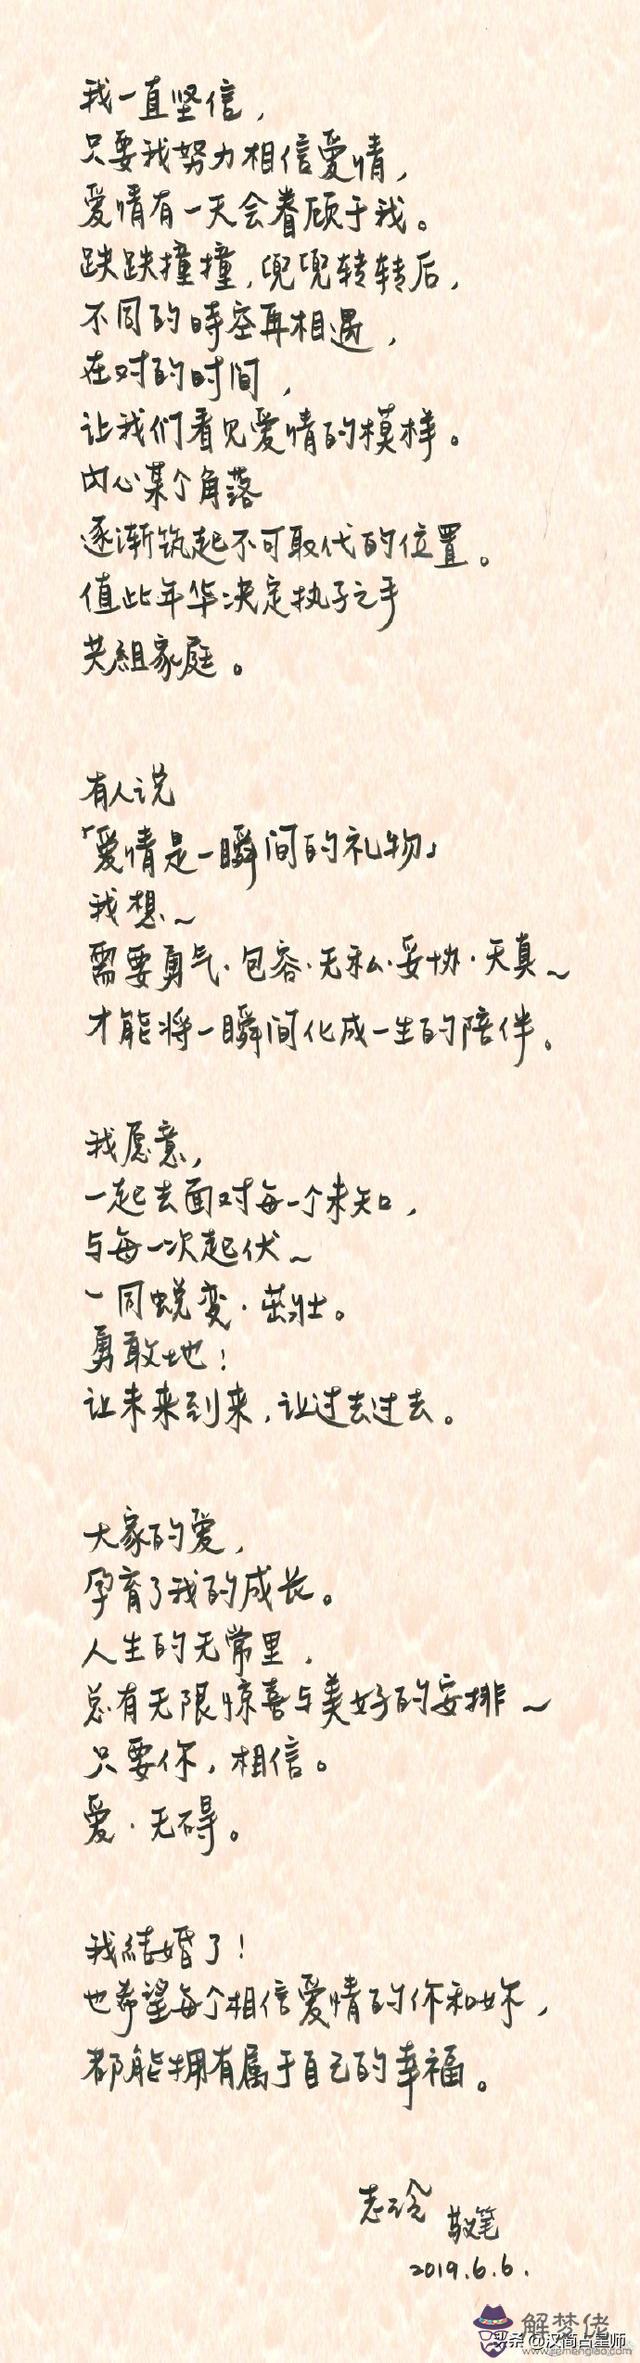 我一直坚信，
只要我努力相信爱情，
爱情有一天会眷顾于我。
跌跌撞撞，兜兜转转后，
不同的時空再相遇，
在对的时间，
让我们看见爱情的模样。
内心某个角落
逐渐筑起不可取代的位置。
值此年华决定执子之手
共組家庭。
有人说
「爱情是一瞬间的礼物」
我想～
需要勇气·包容·无私·妥协·天真～
才能将一瞬间化成一生的陪伴。
我愿意，
一起去面对每一个未知，
与每一次起伏～
一同蜕变·茁壮。
勇敢地！
让未来到来，让过去过去。
大家的爱，
孕育了我的成长。
人生的无常里，
总有无限惊喜与美好的安排～
只要你，相信。
爱·无碍。
我結婚了！
也希望每个相信爱情的你和妳，
都能拥有属于自己的幸福。
志玲 敬笔
2019.6.6.
解梦佬
头条@汉简占星师
www.jiemenglao.com